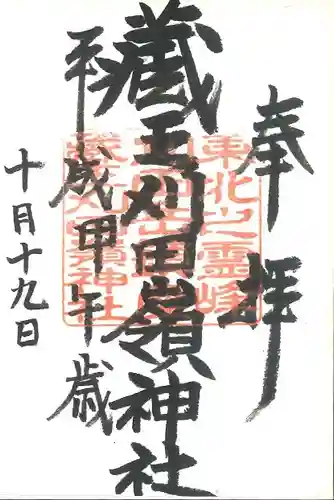 奉拝
蔵王刈田嶺神社
平成甲午歳
十月十九日
東北之霊峰
蔵王刈田嶺神社